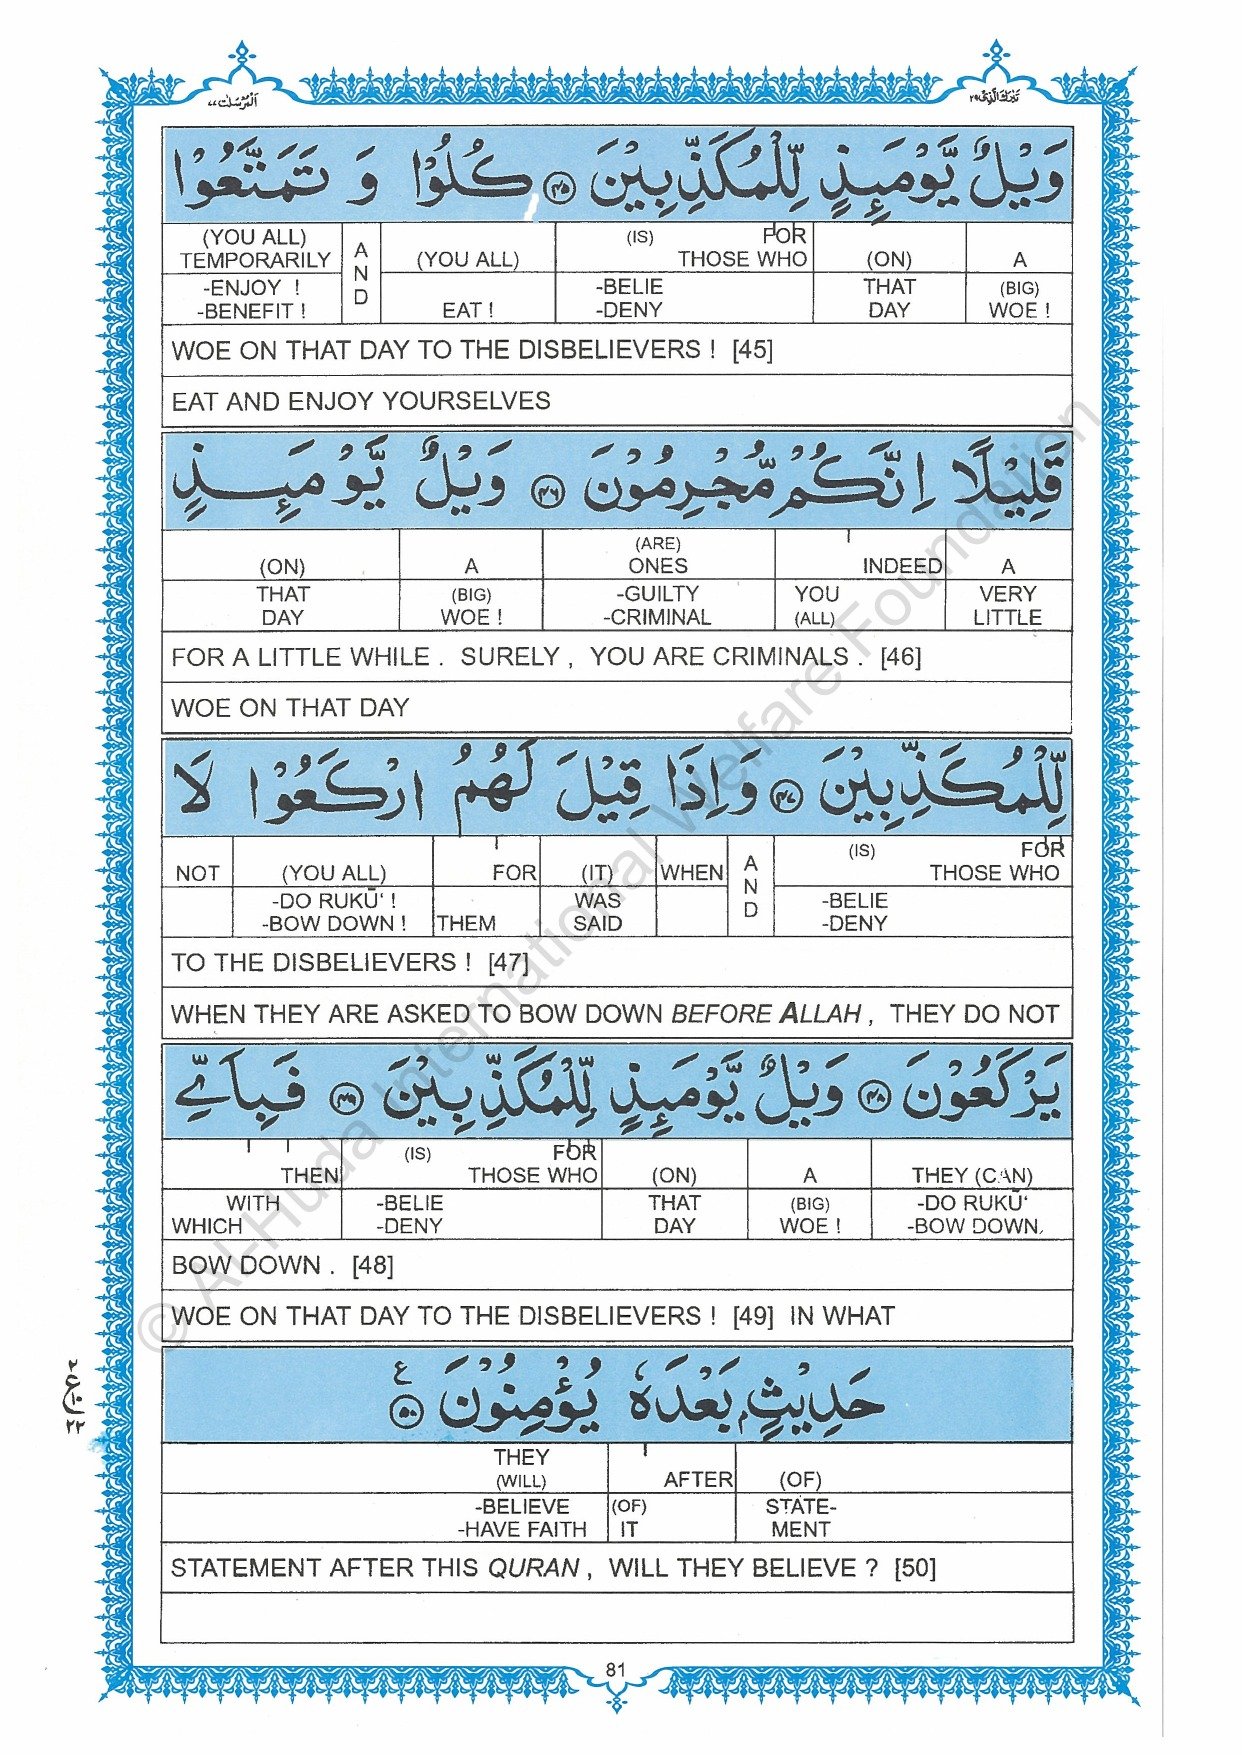 اَلْمُرْسَلٰت ٧٧
تَبٰرَكَ الَّذِىْ ٢٩
وَيْلٌ يَّوْمَئِذٍ لِّلْمُكَذِّبِيْنَ ﴿٤٥﴾ كُلُوْا وَ تَمَتَّعُوْا
(YOU ALL) (IS) FOR
TEMPORARILY AND (YOU ALL) THOSE WHO (ON) A
-ENJOY ! -BELIE THAT (BIG)
-BENEFIT ! EAT ! -DENY DAY WOE !
WOE ON THAT DAY TO THE DISBELIEVERS ! [45]
EAT AND ENJOY YOURSELVES
قَلِيْلًا اِنَّكُمْ مُّجْرِمُوْنَ ﴿٤٦﴾ وَيْلٌ يَّوْمَئِذٍ
(ARE)
(ON) A ONES INDEED A
THAT (BIG) -GUILTY YOU VERY
DAY WOE ! -CRIMINAL (ALL) LITTLE
FOR A LITTLE WHILE . SURELY , YOU ARE CRIMINALS . [46]
WOE ON THAT DAY
لِّلْمُكَذِّبِيْنَ ﴿٤٧﴾ وَاِذَا قِيْلَ لَهُمُ ارْكَعُوْا لَا
(IS) FOR
NOT (YOU ALL) FOR (IT) WHEN AND THOSE WHO
-DO RUKŪ‘ ! WAS -BELIE
-BOW DOWN ! THEM SAID -DENY
TO THE DISBELIEVERS ! [47]
WHEN THEY ARE ASKED TO BOW DOWN BEFORE ALLAH , THEY DO NOT
يَرْكَعُوْنَ ﴿٤٨﴾ وَيْلٌ يَّوْمَئِذٍ لِّلْمُكَذِّبِيْنَ ﴿٤٩﴾ فَبِاَيِّ
(IS) FOR
THEN THOSE WHO (ON) A THEY (CAN)
WITH -BELIE THAT (BIG) -DO RUKŪ‘
WHICH -DENY DAY WOE ! -BOW DOWN.
BOW DOWN . [48]
WOE ON THAT DAY TO THE DISBELIEVERS ! [49] IN WHAT
حَدِيْثٍ بَعْدَهٗ يُؤْمِنُوْنَ ﴿٥٠﴾ ع
THEY
(WILL) AFTER (OF)
-BELIEVE (OF) STATE-
-HAVE FAITH IT MENT
STATEMENT AFTER THIS QURAN , WILL THEY BELIEVE ? [50]
٢
ع ١٠
٢٢
81
© Al-Huda International Welfare Foundation